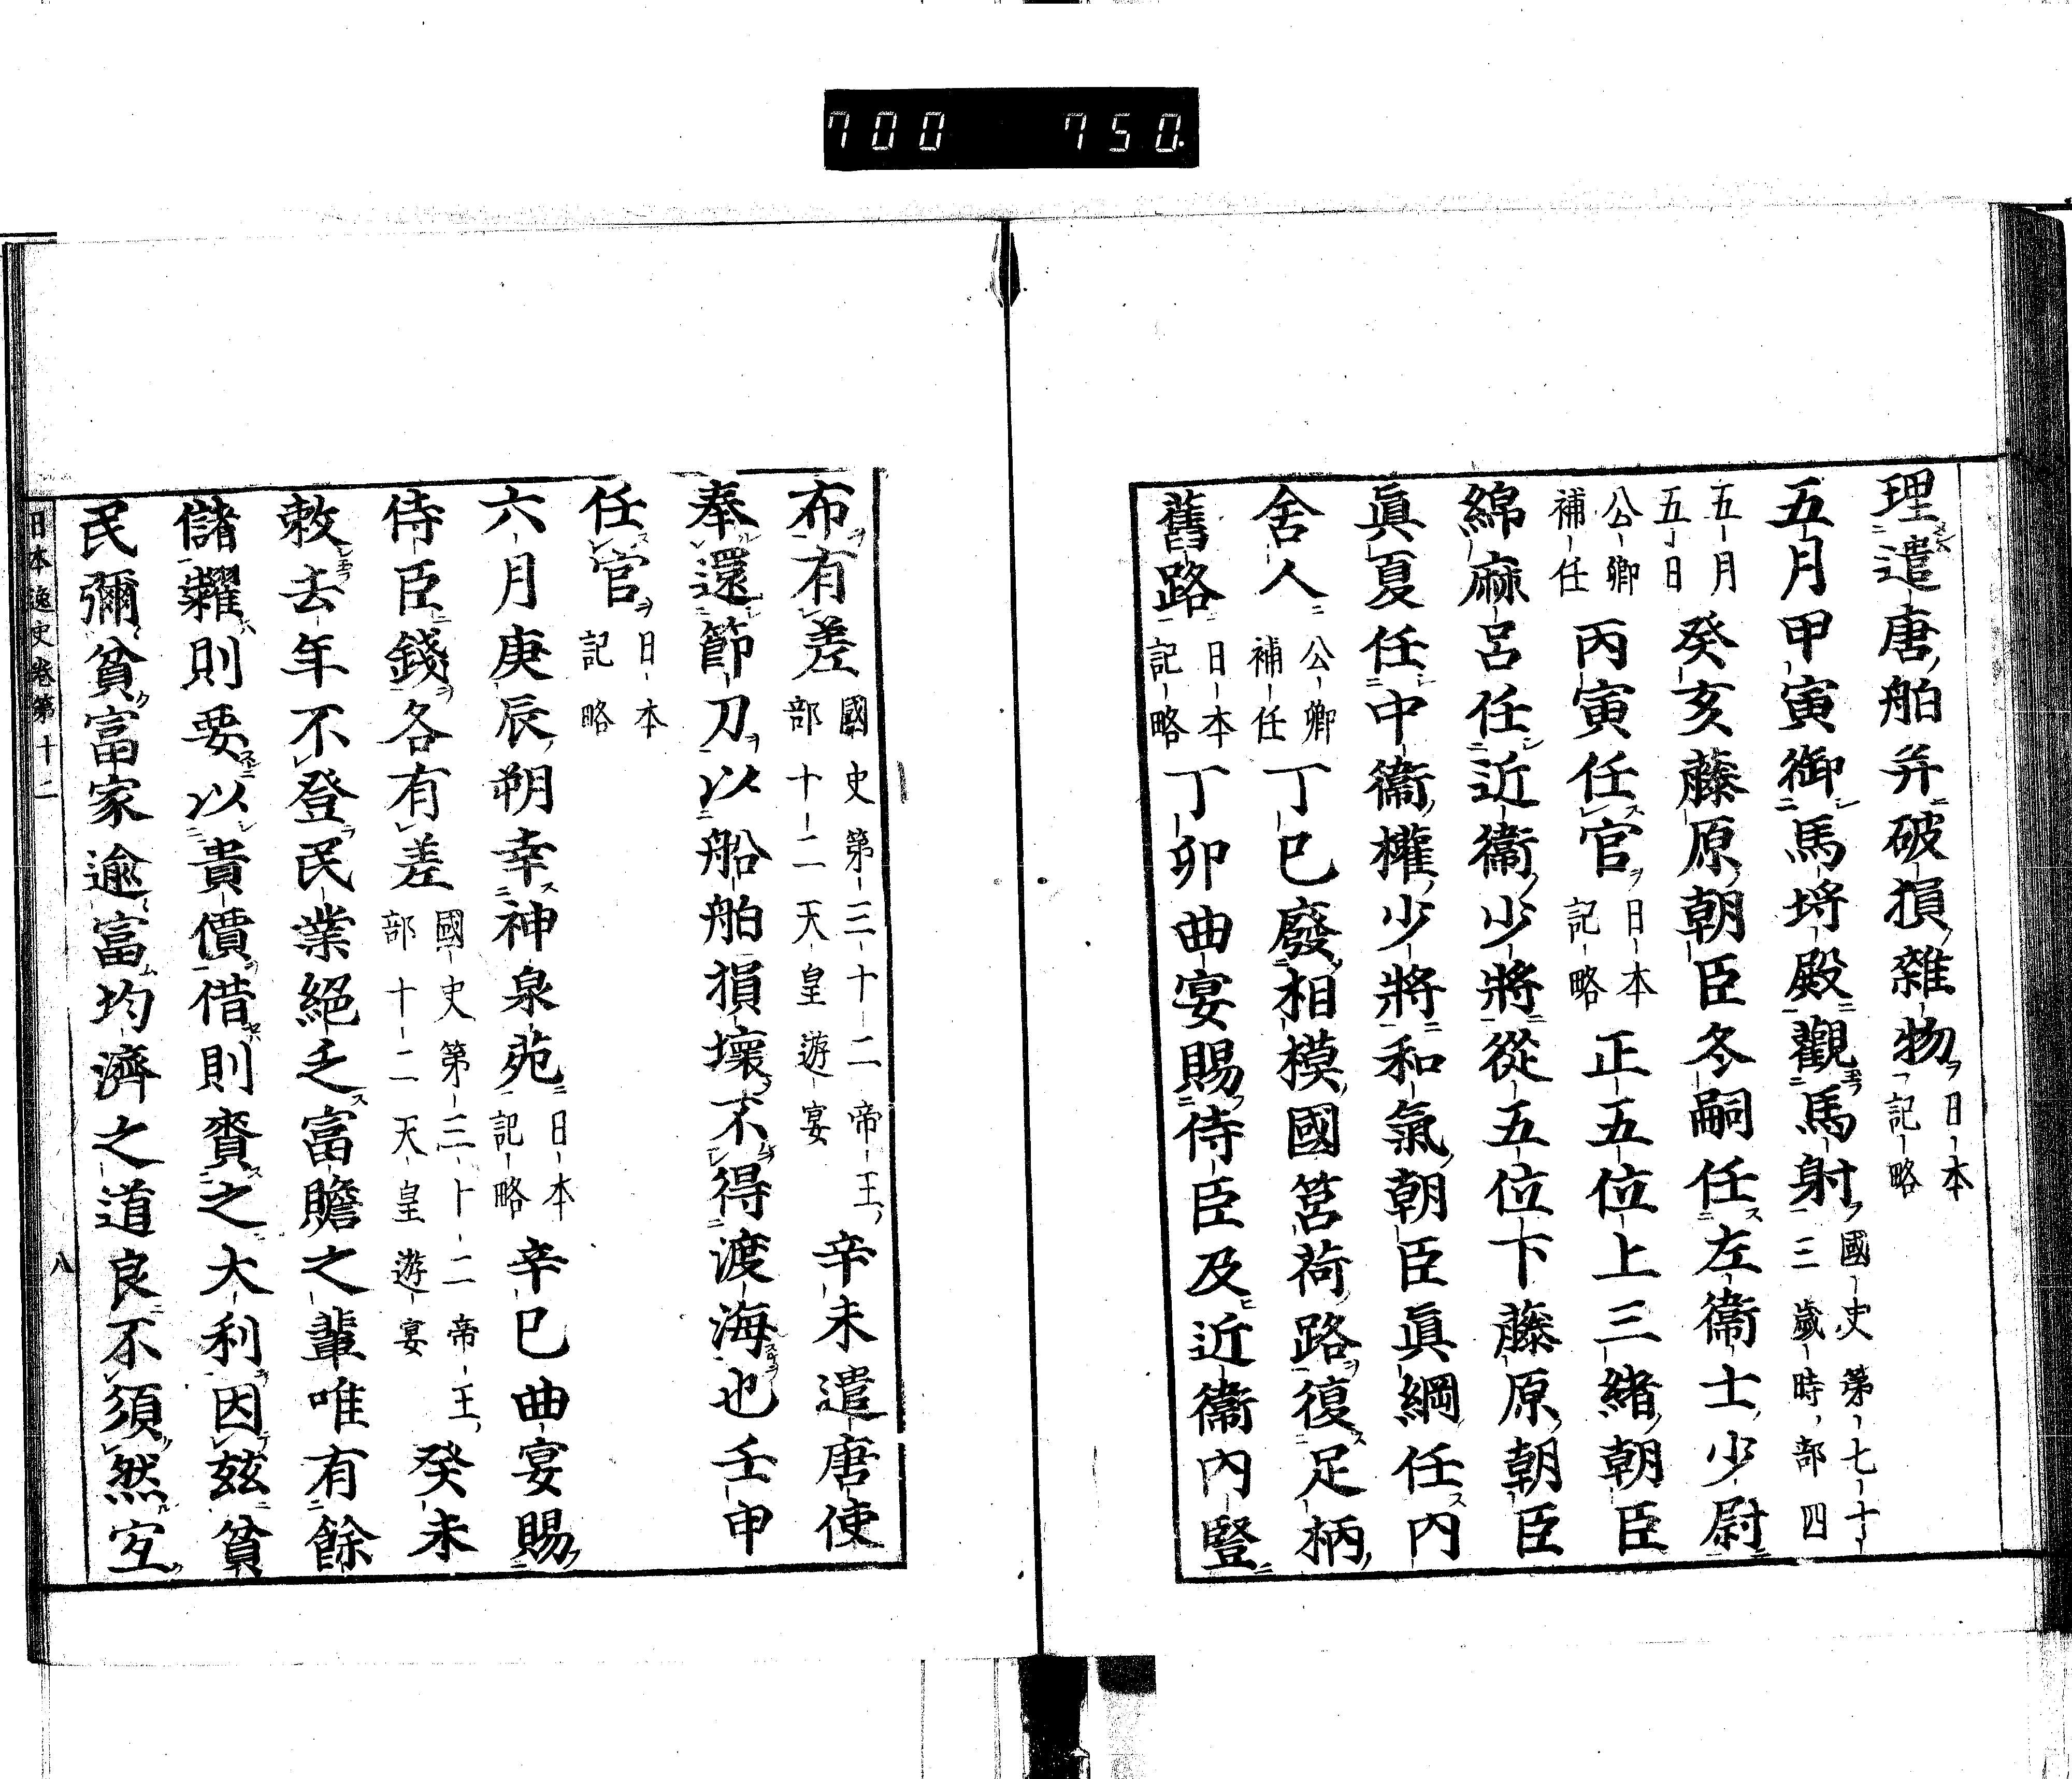 700 750.
理遣唐舶并破損雜物日本記略
五月甲寅御馬埒殿觀馬射國史第七十三歲時部四
五月五日癸亥藤原朝臣冬嗣任左衞士少尉
公卿補任丙寅任官日本記略正五位上三緒朝臣
綿麻呂任近衞少將從五位下藤原朝臣
眞夏任中衞權少將和氣朝臣眞綱任內
舍人公卿補任丁巳廢相模國筥荷路復足柄
舊路日本記略丁卯曲宴賜侍臣及近衞內豎
布有差國史第三十二帝王部十二天皇遊宴辛未遣唐使
奉還節刀以船舶損壞不得渡海也壬申
任官日本記略
六月庚辰朔幸神泉苑日本記略辛巳曲宴賜
侍臣錢各有差國史第三十二帝王部十二天皇遊宴癸未
敕去年不登民業絕乏富贍之輩唯有餘
儲糶則要以貴價借則賚之大利因茲貧
民彌貧富家逾富均濟之道良不須然宜
日本逸史卷第十二 八